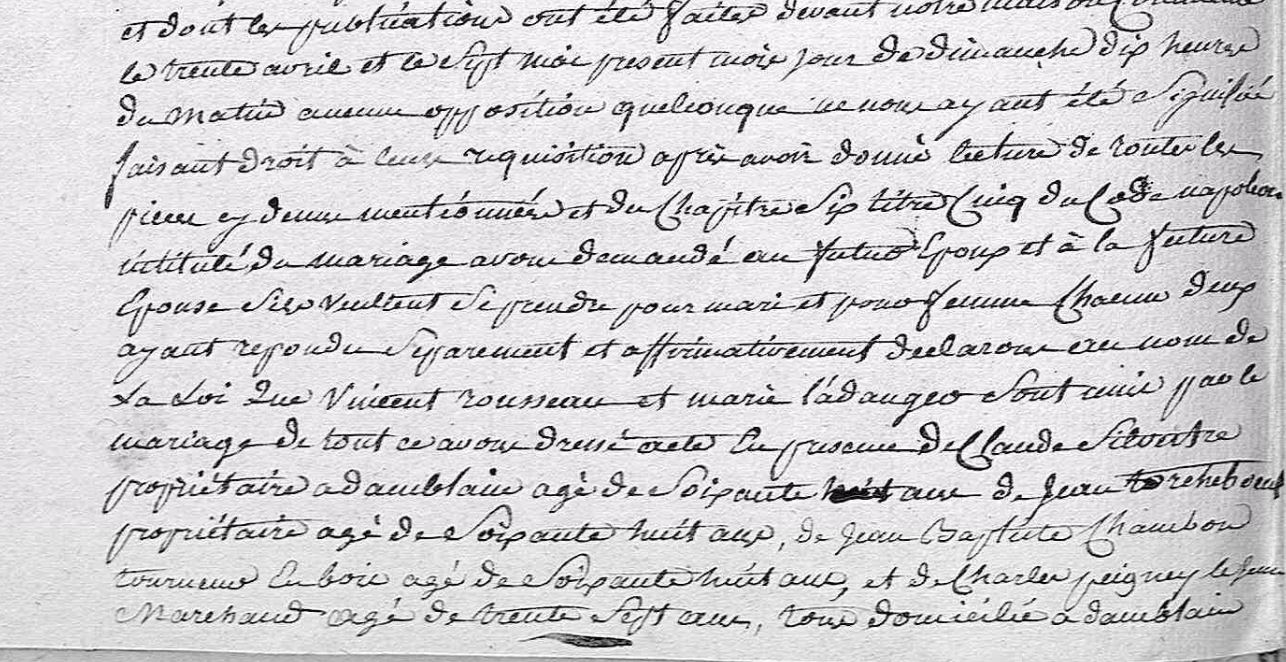 et dont les publications ont été faites devant notre maison Commune
le trente avril et le Sept mai present mois jour de dimanche dix heures
du matin aucune opposition quelconque ne nous ayant été Signifiée
faisant droit à leur requisition après avoir donné lecture de toutes les
pieces cy dessus mentionnées et du Chapitre Six titre Cinq du Code napoleon
intitulé du mariage avons demandé au futur Epoux et à la future
Epouse Sils Veullent Se prendre pour mari et pour femme Chacun deux
ayant repondu Separement et affirmativement declarons au nom de
La Loi Que Vincent rousseau et marie ladauges Sont unis par le
mariage de tout ce avons dressé acte En presence de Claude Silvestre
proprietaire a damblain agé de Soixante ans de Jean
propriétaire agé de Soixante huit ans, de Jean Baptiste Chambon
tourneur En bois agé de Soixante huit ans, et de Charles peigney le Jeune
Marchand agé de trente Sept ans, tous domicilié a damblain